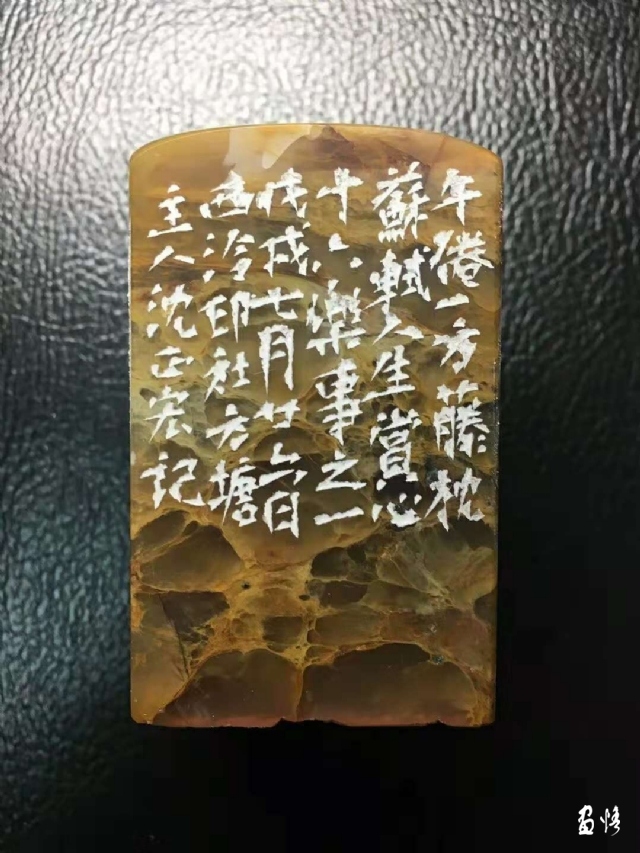 午倦一方藤枕
蘇軾人生賞心
十六樂事之一
戊戌七月廿六日
西泠印社方塘
主人沈正宏記